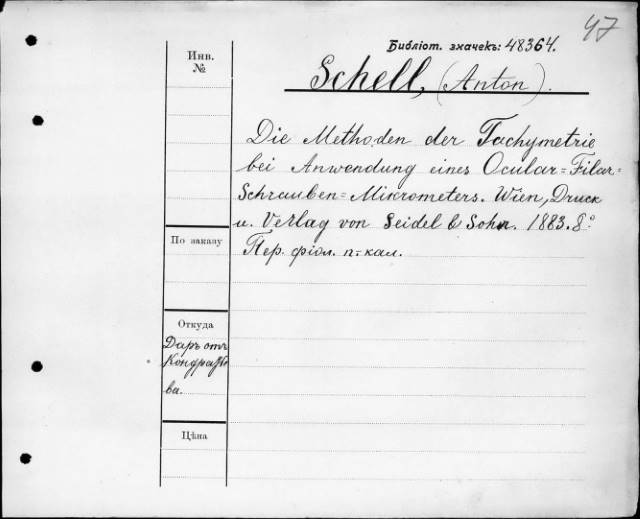 47
Библіот. значекъ: 48364.
Инв.
№
Schell, (Anton).
Die Methoden der Tachymetrie
bei Anwendung eines Ocular=Filar=
Schrauben=Mikrometers. Wien, Druck
u. Verlag von Seidel & Sohn. 1883. 8°
Пер. фіол. п.-кал.
По заказу
Откуда
Даръ отъ
Кондратье
ва.
Цѣна